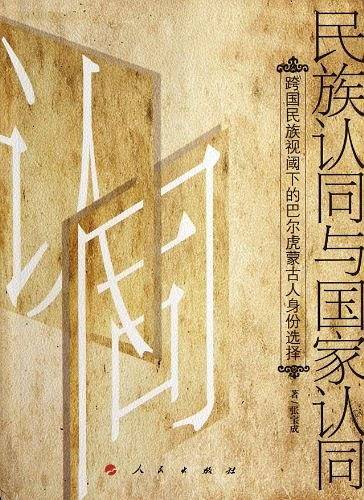 民族认同与国家认同
跨国民族视阈下的巴尔虎蒙古人身份选择
著 张宝成
认同
人民出版社